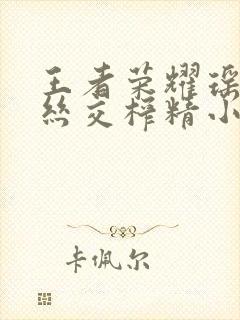 王者荣耀瑶
丝交榨精小
卡佩尔